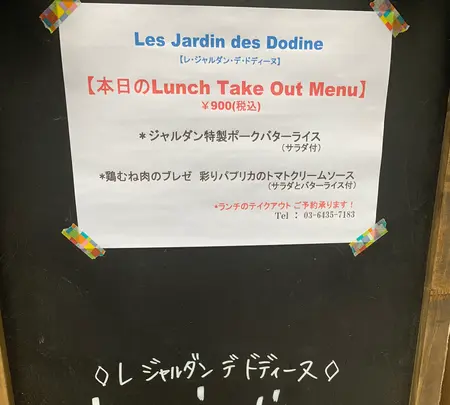 Les Jardin des Dodine
【レ・ジャルダン・デ・ドディーヌ】
【本日のLunch Take Out Menu】
￥900(税込)
＊ジャルダン特製ポークバターライス
(サラダ付)
＊鶏むね肉のブレゼ 彩りパプリカのトマトクリームソース
(サラダとバターライス付)
*ランチのテイクアウト ご予約承ります！
Tel ： 03-6435-7183
◇レ ジャルダン デ ドディーヌ◇